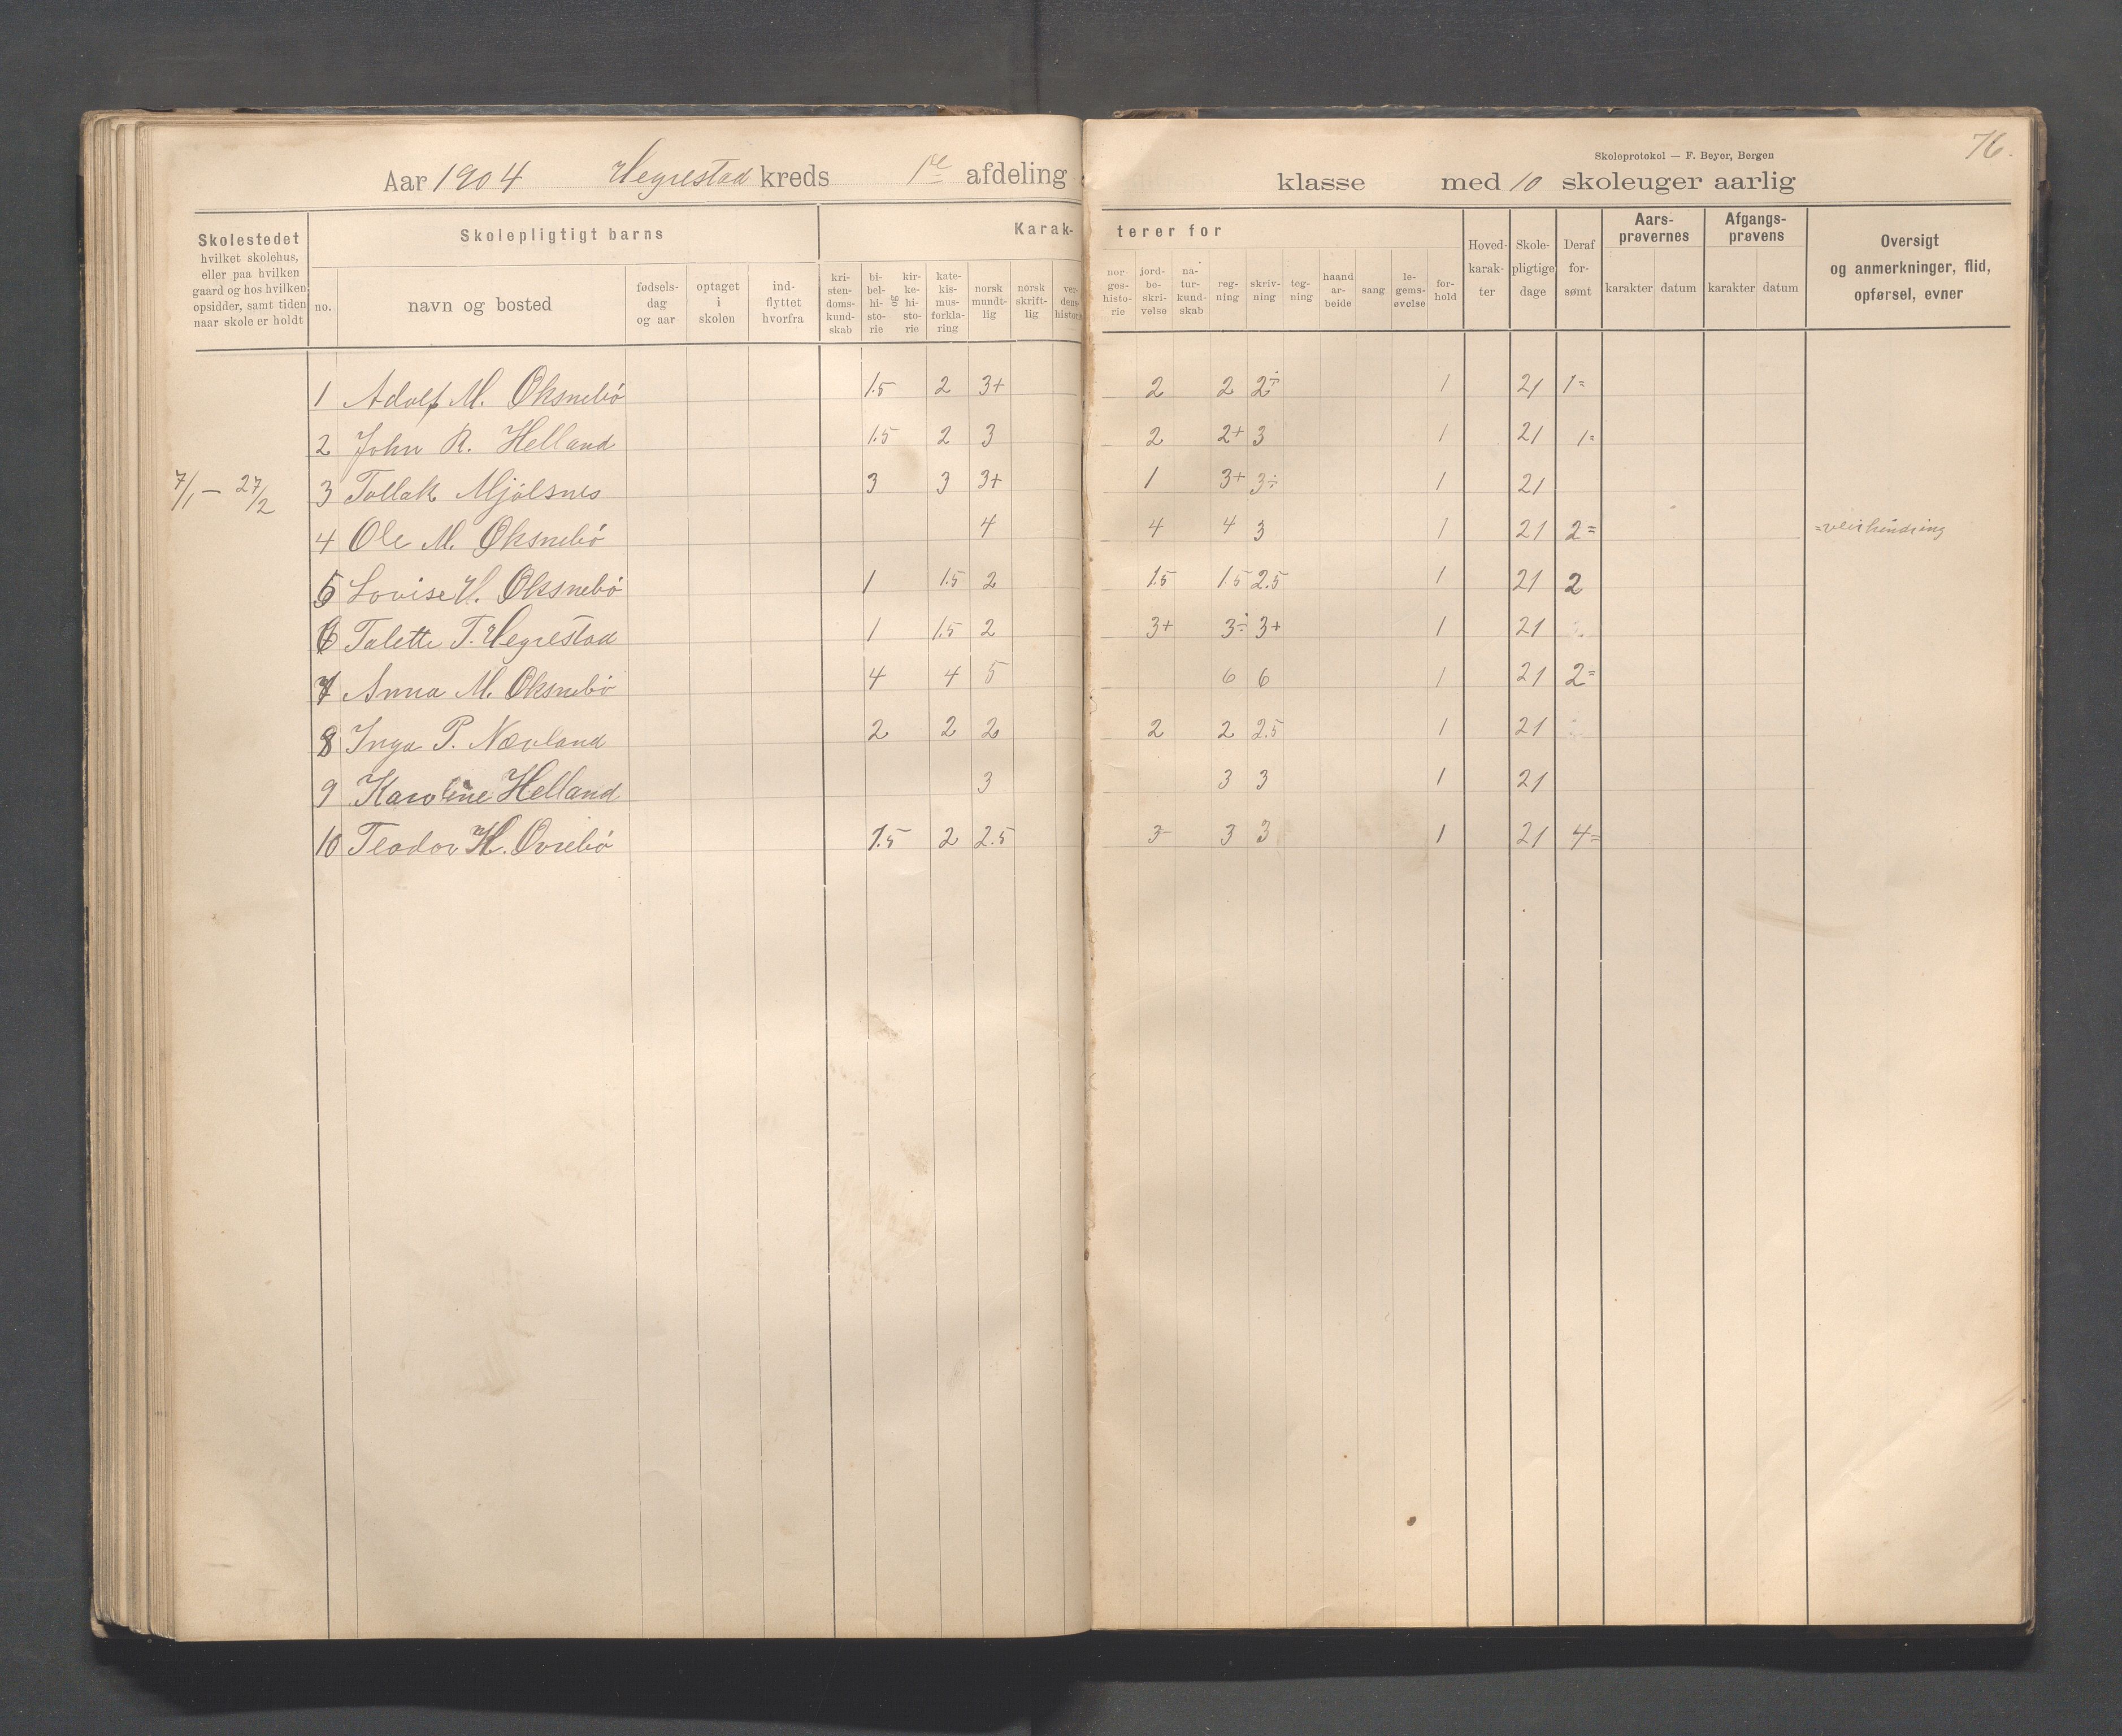 76.
Skoleprotokol — F. Beyer, Bergen
Aar 1904 Hegrestad kreds 1ste afdeling klasse med 10 skoleuger aarlig
Skolestedet hvilket skolehus, eller paa hvilken gaard og hos hvilken opsidder, samt tiden naar skole er holdt
Skolepligtigt barns
no. navn og bosted fødsels-dag og aar optaget i skolen ind-flyttet hvorfra
Karak-terer for
kri-sten-doms-kund-skab bi-bel-hi-sto-rie og kir-ke-hi-sto-rie kate-kis-mus-forkla-ring norsk mundt-lig norsk skrift-lig ver-dens-histori nor-ges-histo-rie jord-be-skri-velse na-tur-kund-skab reg-ning skriv-ning teg-ning haand ar-beide sang le-gems-øvelse for-hold
Hoved-karak-ter Skole-pligtige dage Deraf for-sømt
Aars-prøvernes karakter datum
Afgangs-prøvens karakter datum
Oversigt og anmerkninger, flid, opførsel, evner
1 Adolf M. Øksnebö 1.5 2 3+ 2 2 2÷ 1 21 1=
2 John R. Helland 1.5 2 3 2 2+ 3 1 21 1=
7/1 — 27/2 3 Tollak Mjölsnes 3 3 3+ 1 3+ 3÷ 1 21
4 Ole M. Øksnebö 4 4 4 3 1 21 2= =veirhindring
5 Lovise V. Øksnebö 1 1.5 2 1.5 1.5 2.5 1 21 2
6 Talette T. Hegrestad 1 1.5 2 3+ 3÷ 3+ 1 21
7 Anna M. Øksnebö 4 4 5 6 6 1 21 2=
8 Inga P. Nævland 2 2 2 2 2 2.5 1 21
9 Karoline Helland 3 3 3 1 21
10 Teodor H. Ovrebö 1.5 2 2.5 3- 3 3 1 21 4=